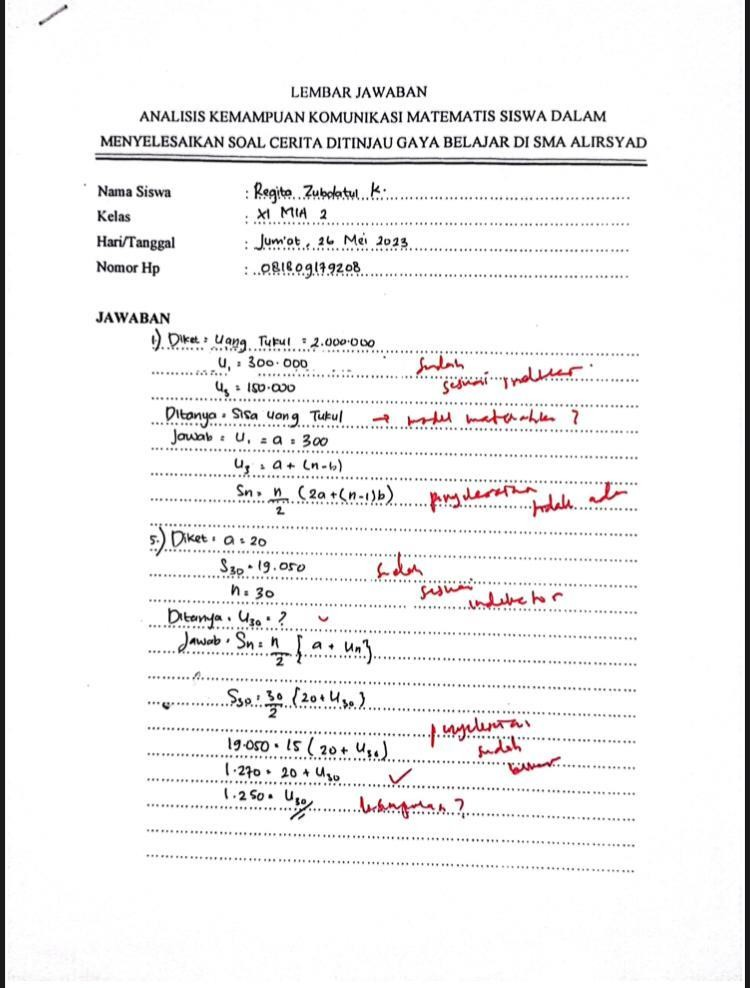 LEMBAR JAWABAN
ANALISIS KEMAMPUAN KOMUNIKASI MATEMATIS SISWA DALAM
MENYELESAIKAN SOAL CERITA DITINJAU GAYA BELAJAR DI SMA ALIRSYAD
Nama Siswa : Regita Zubdatul K.
Kelas : XI MIA 2
Hari/Tanggal : Jum'at, 26 Mei 2023
Nomor Hp : 081809179208
JAWABAN
1.) Diket : Uang Tukul = 2.000.000
U₁ = 300.000 Sudah
U₃ = 150.000 sesuai indikator
Ditanya : Sisa uang Tukul → model matematika ?
Jawab = U₁ = a = 300
U₃ = a + (n-b)
Sn = n/2 (2a+(n-1)b) penyelesaian tidak ada
5.) Diket : a = 20
S₃₀ = 19.050 sudah
n = 30 sesuai indikator
Ditanya : U₃₀ = ?
Jawab : Sn = n/2 { a + Un }
S₃₀ = 30/2 {20 + U₃₀)
penyelesaian
19.050 = 15 ( 20 + U₃₀) sudah
1.270 = 20 + U₃₀ ✓ benar
1.250 = U₃₀ kesimpulan ?